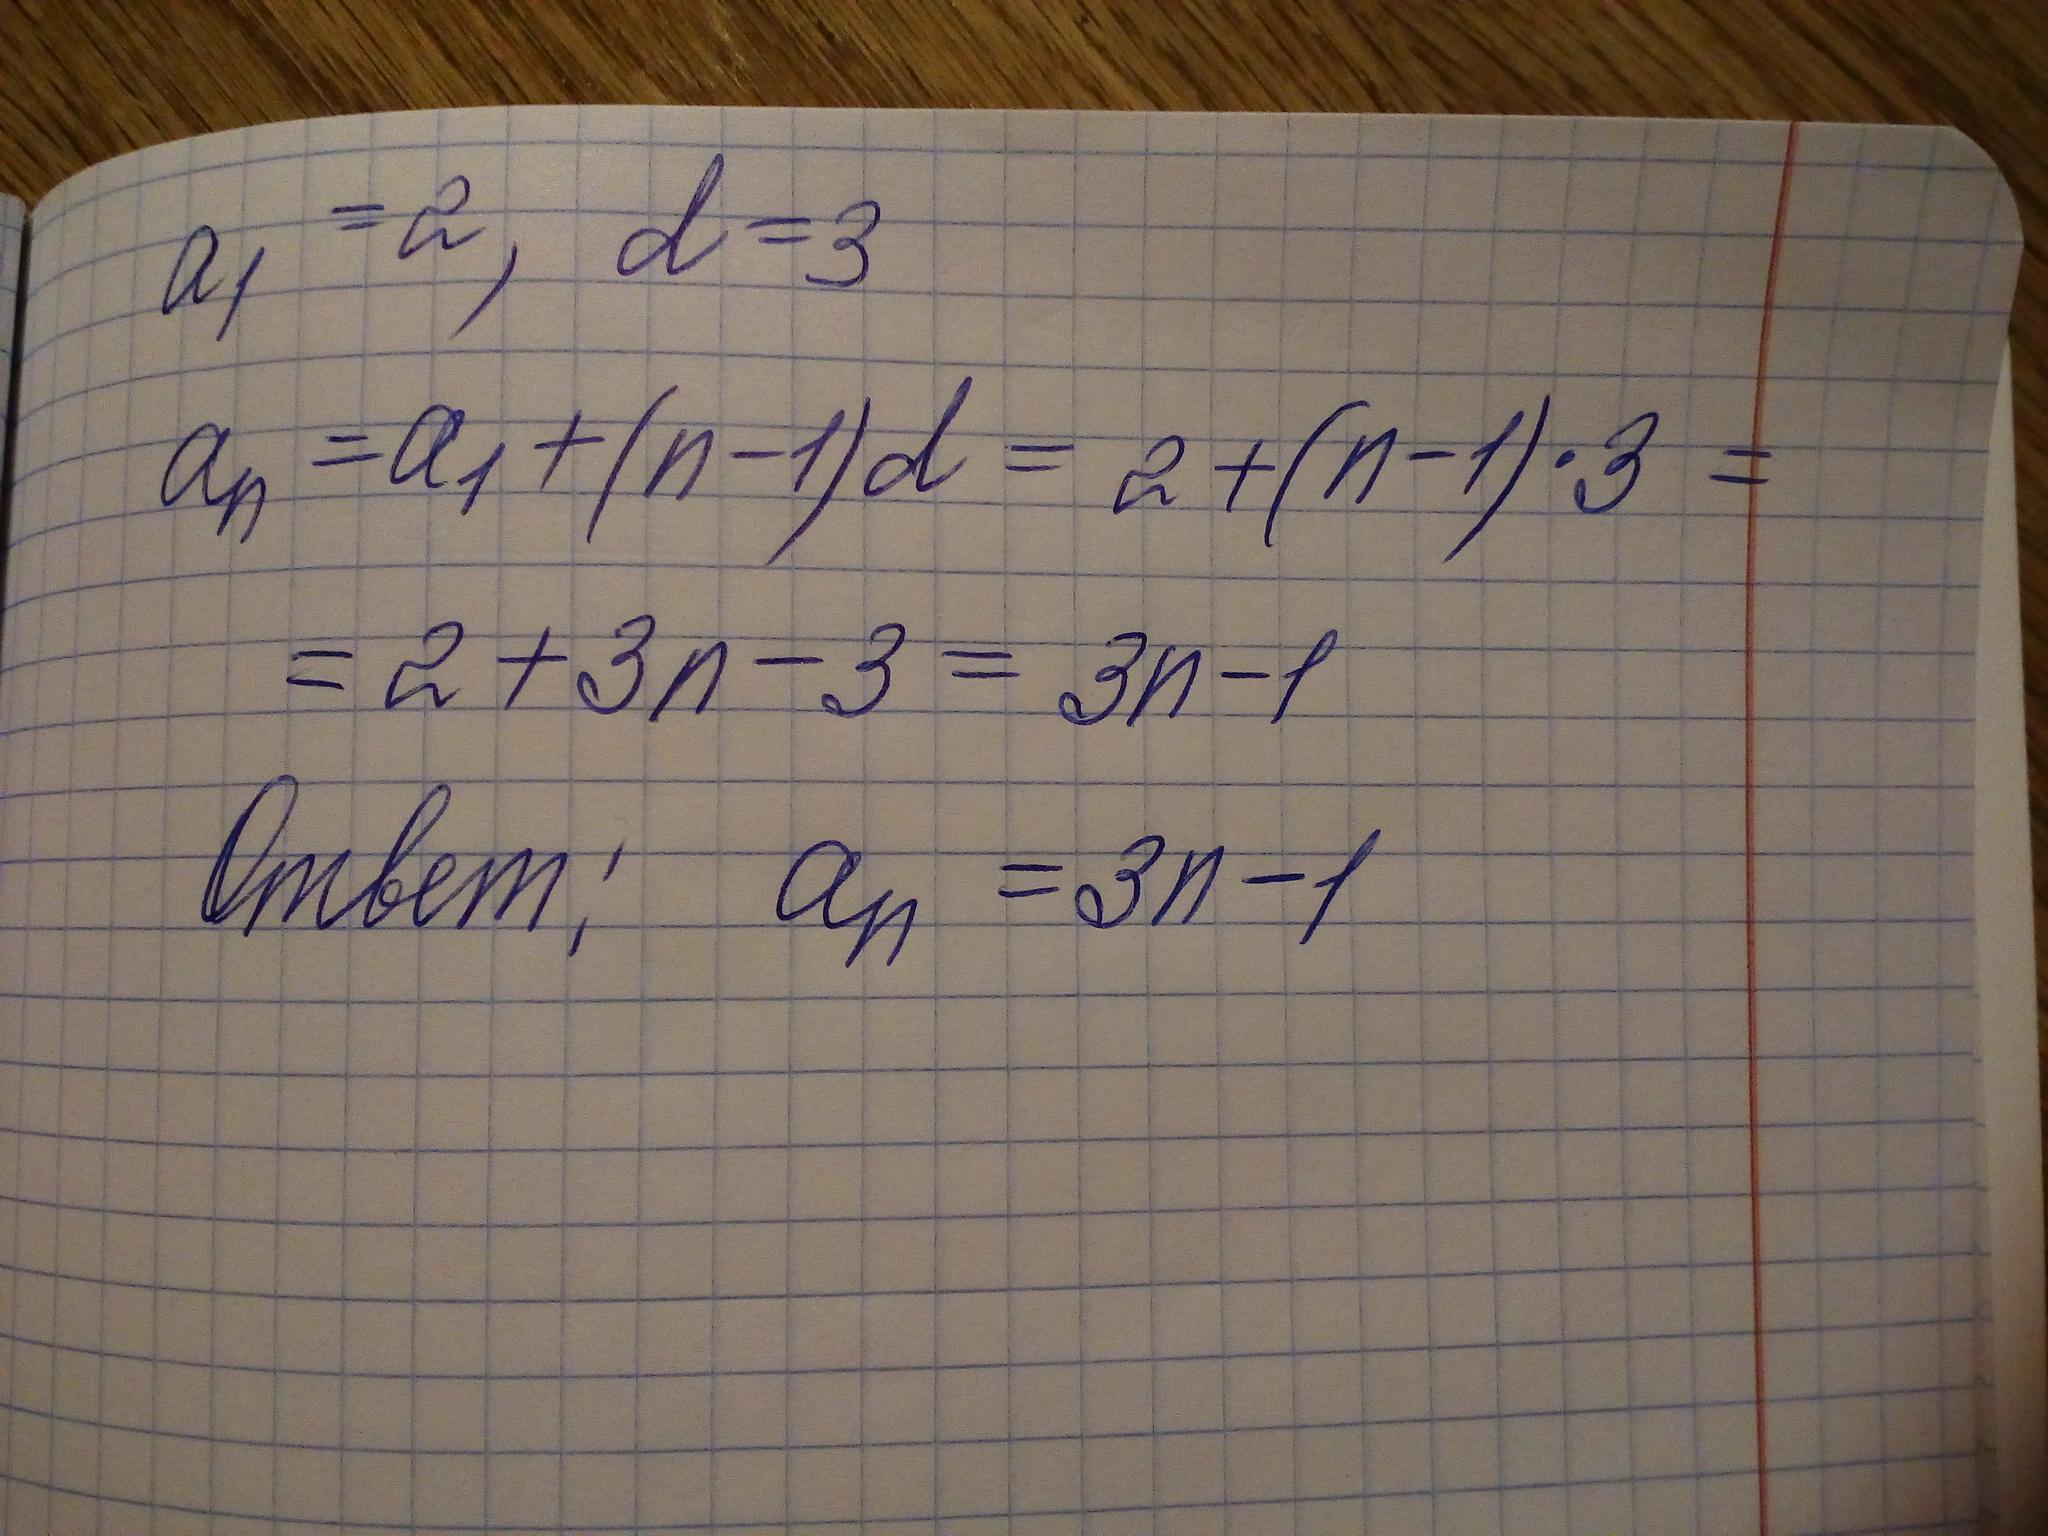 a₁ = 2, d = 3
aₙ = a₁ + (n - 1)d = 2 + (n - 1) · 3 =
= 2 + 3n - 3 = 3n - 1
Ответ: aₙ = 3n - 1